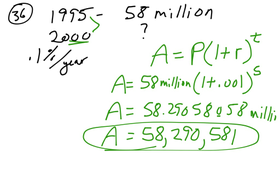 36 1995 - 58 million
2000 ?
.1%/year
A = P(1+r)^t
A = 58 million (1+.001)^5
A = 58.2905058 million
A = 58,290,581